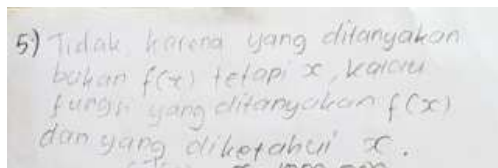 5) Tidak, karena yang ditanyakan
bukan f(x) tetapi x, kalau
fungsi yang ditanyakan f(x)
dan yang diketahui x.